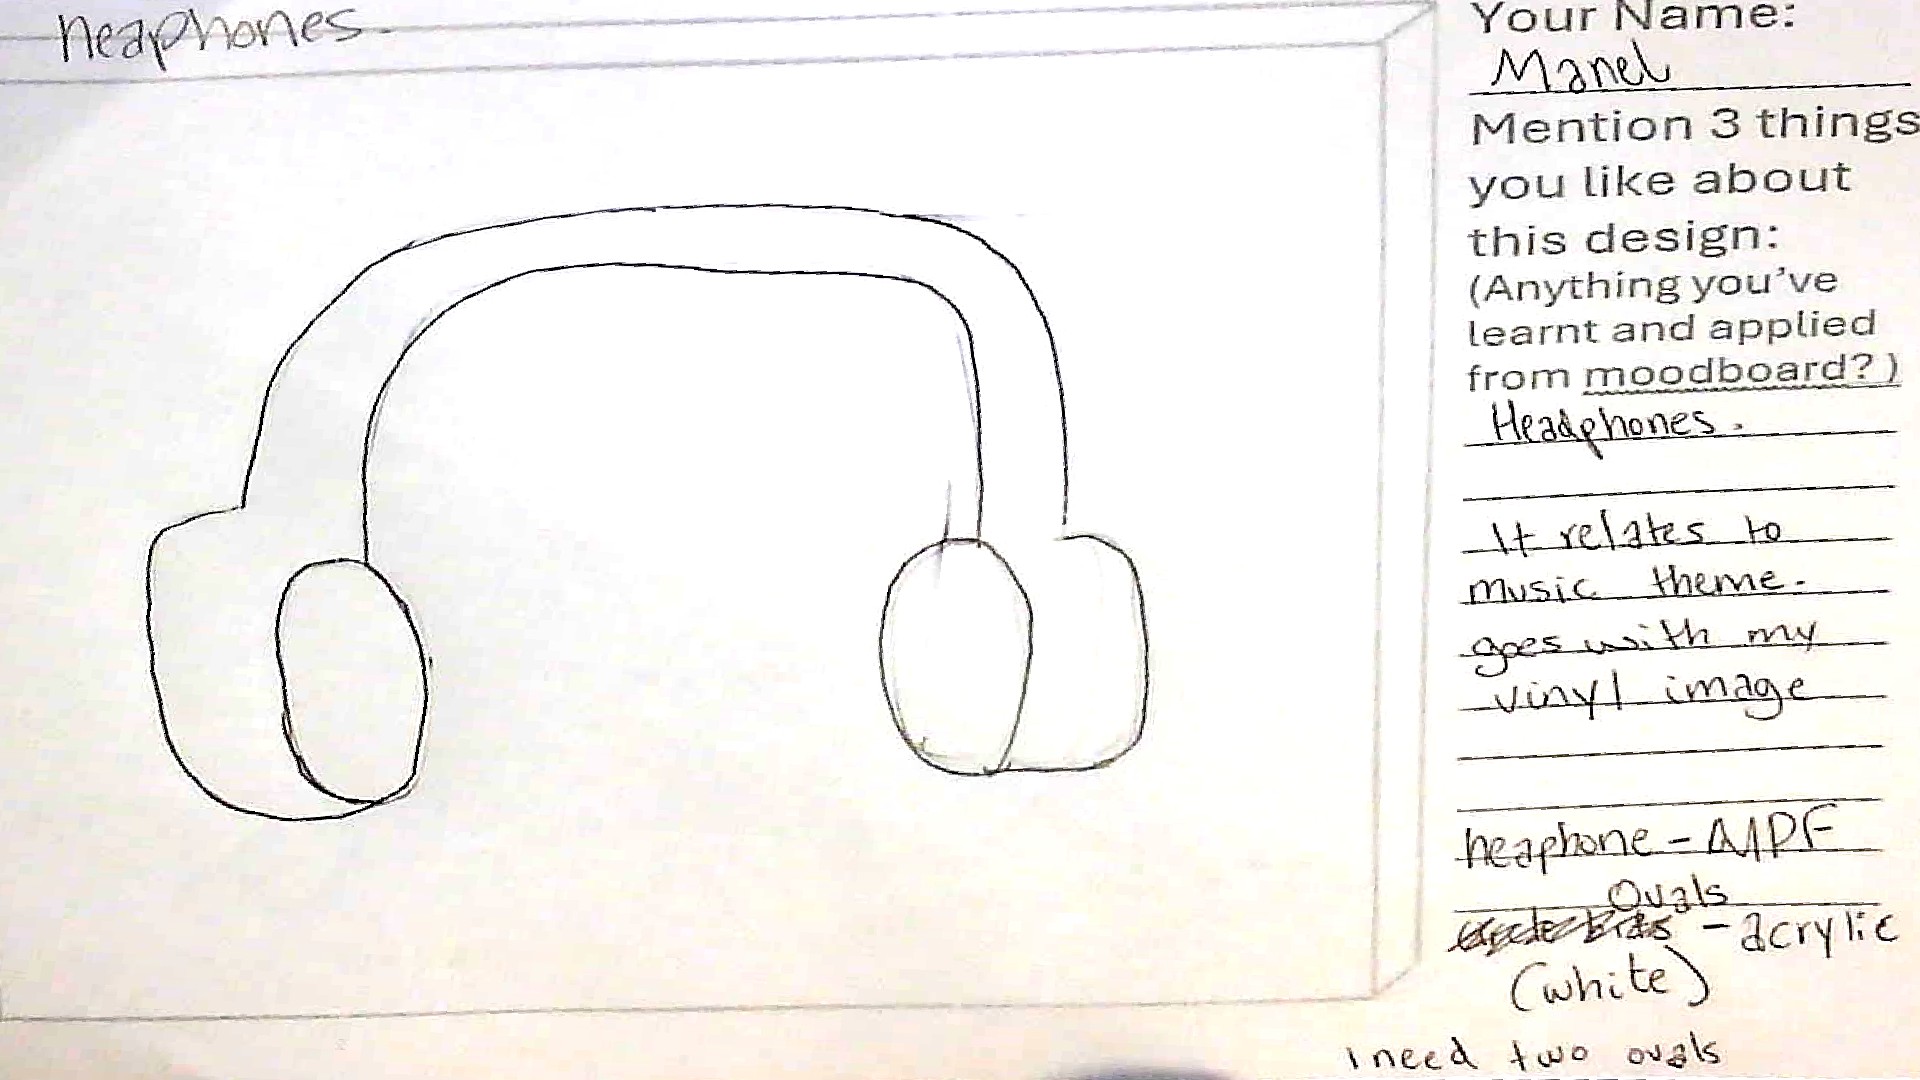 heaphones.
Your Name:
Manel
Mention 3 things
you like about
this design:
(Anything you've
learnt and applied
from moodboard?)
Headphones.
It relates to
music theme.
goes with my
vinyl image
heaphone - MPF
Ovals
- acrylic
(white)
I need two ovals